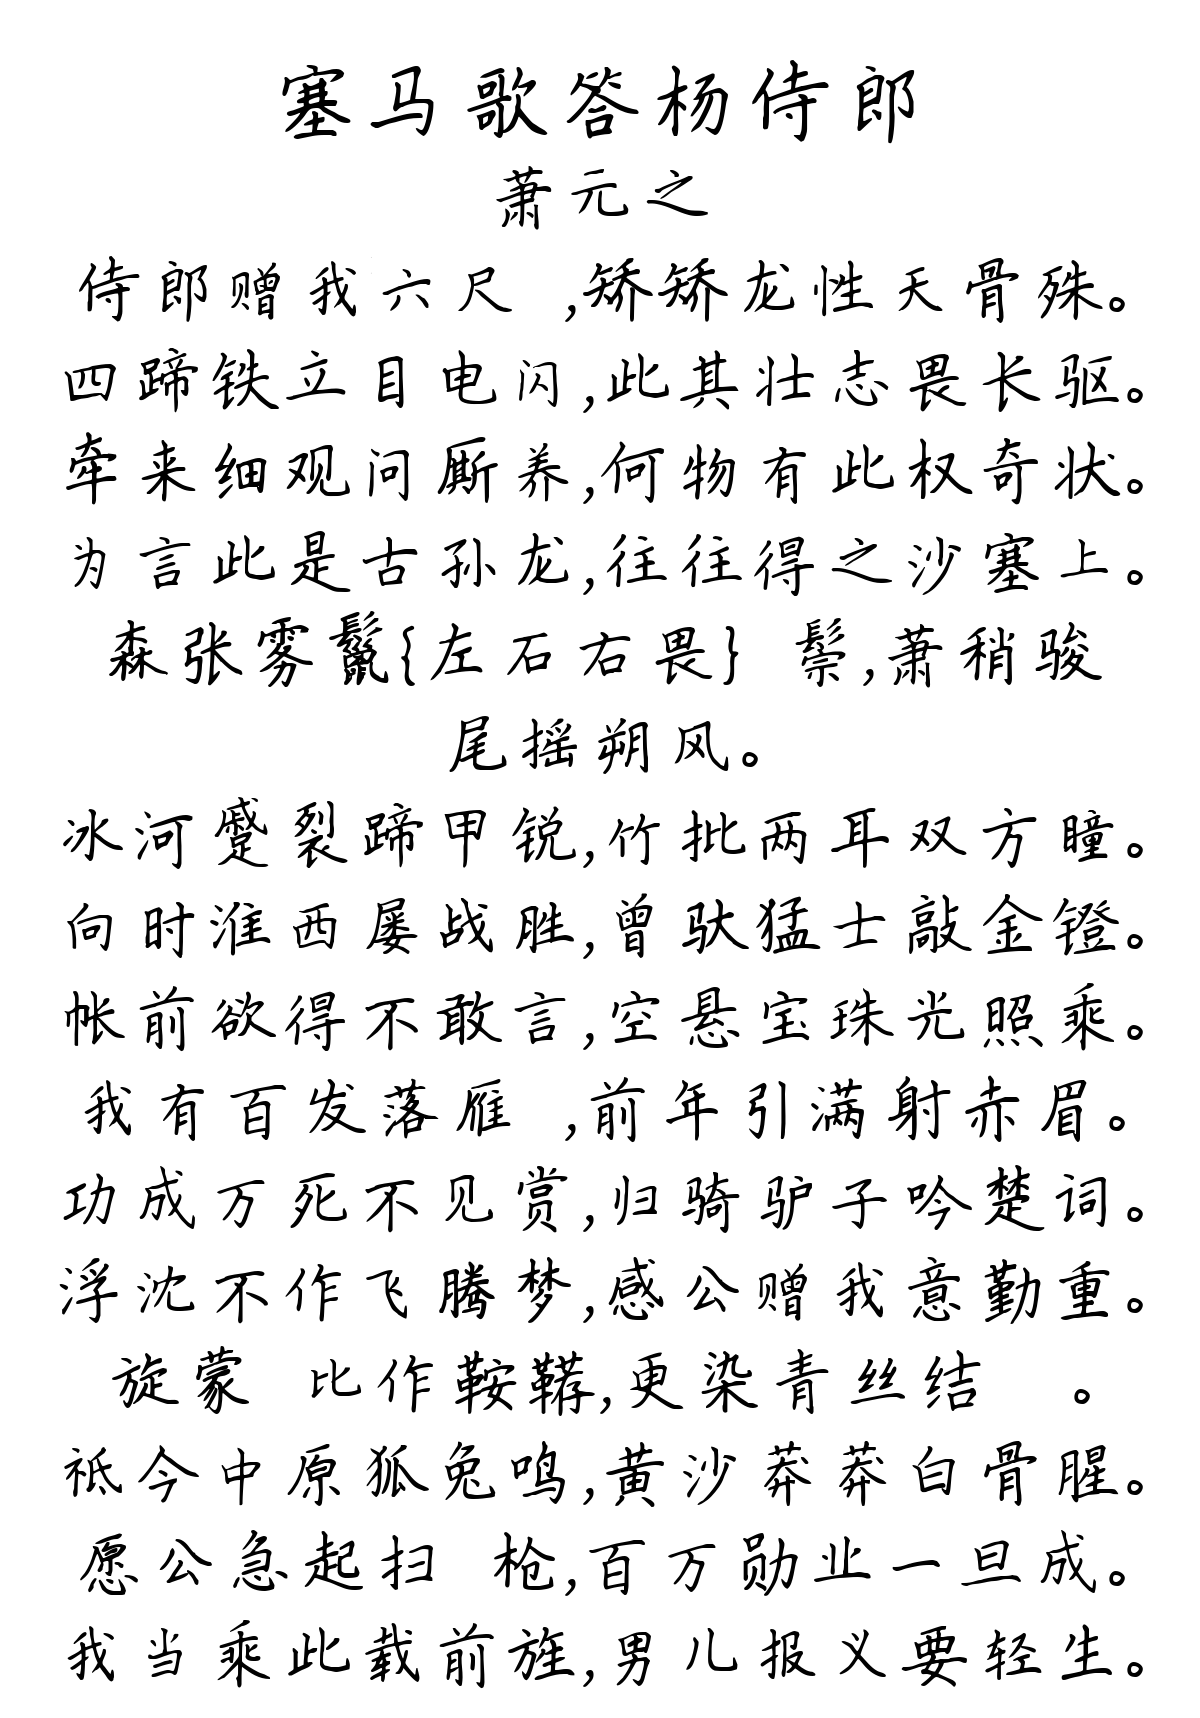 塞马歌答杨侍郎
萧元之
侍郎赠我六尺 ,矫矫龙性天骨殊。
四蹄铁立目电闪,此其壮志畏长驱。
牵来细观问厮养,何物有此权奇状。
为言此是古孙龙,往往得之沙塞上。
森张雾鬣{左石右畏} 鬃,萧稍骏
尾摇朔风。
冰河蹙裂蹄甲锐,竹批两耳双方瞳。
向时淮西屡战胜,曾驮猛士敲金镫。
帐前欲得不敢言,空悬宝珠光照乘。
我有百发落雁 ,前年引满射赤眉。
功成万死不见赏,归骑驴子吟楚词。
浮沈不作飞腾梦,感公赠我意勤重。
旋蒙 比作鞍鞯,更染青丝结 。
祗今中原狐兔鸣,黄沙莽莽白骨腥。
愿公急起扫 枪,百万勋业一旦成。
我当乘此载前旌,男儿报义要轻生。